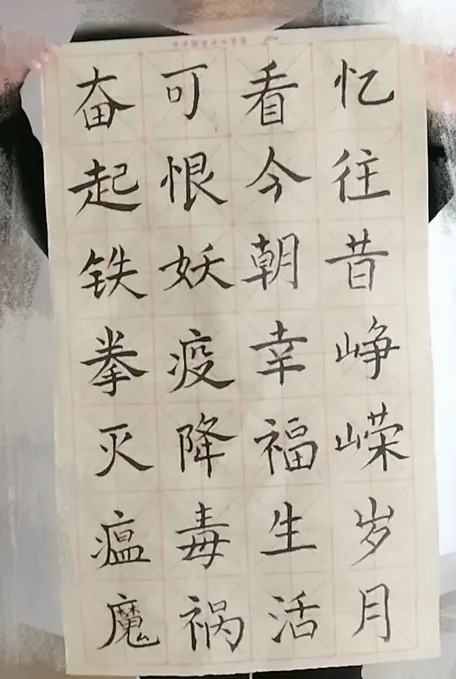 忆往昔峥嵘岁月
看今朝幸福生活
可恨妖疫降毒祸
奋起铁拳灭瘟魔